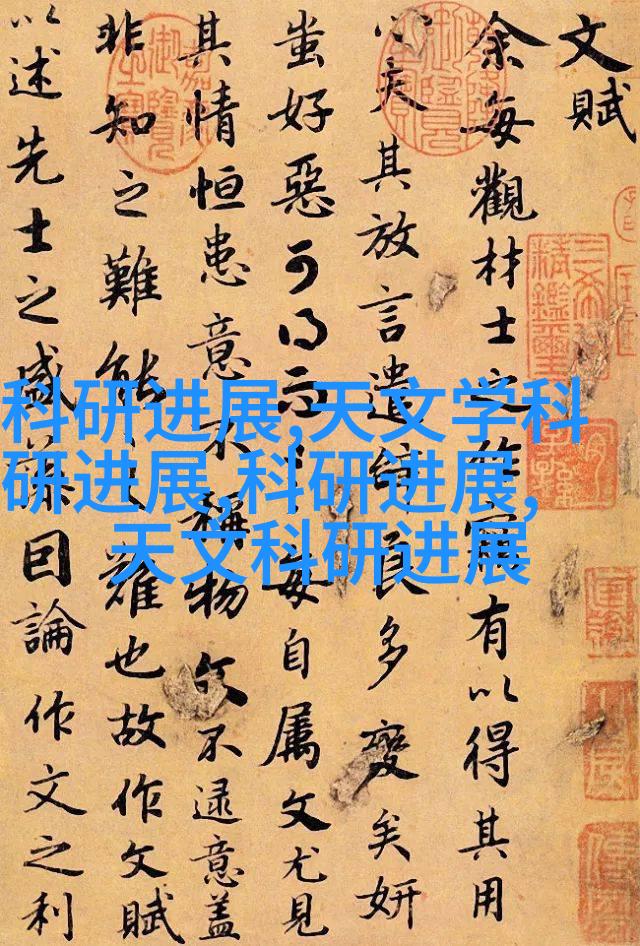 文賦
余每觀材士之作竊有以得其用
心夫其放言遣辭良多變矣妍
蚩好惡可得而言每自屬文尤見
其情恒患意不稱物文不逮意蓋
非知之難能之難也故作文賦
以述先士之盛藻因論作文之利
科研进展,天文学科
研进展,科研进展,
天文科研进展